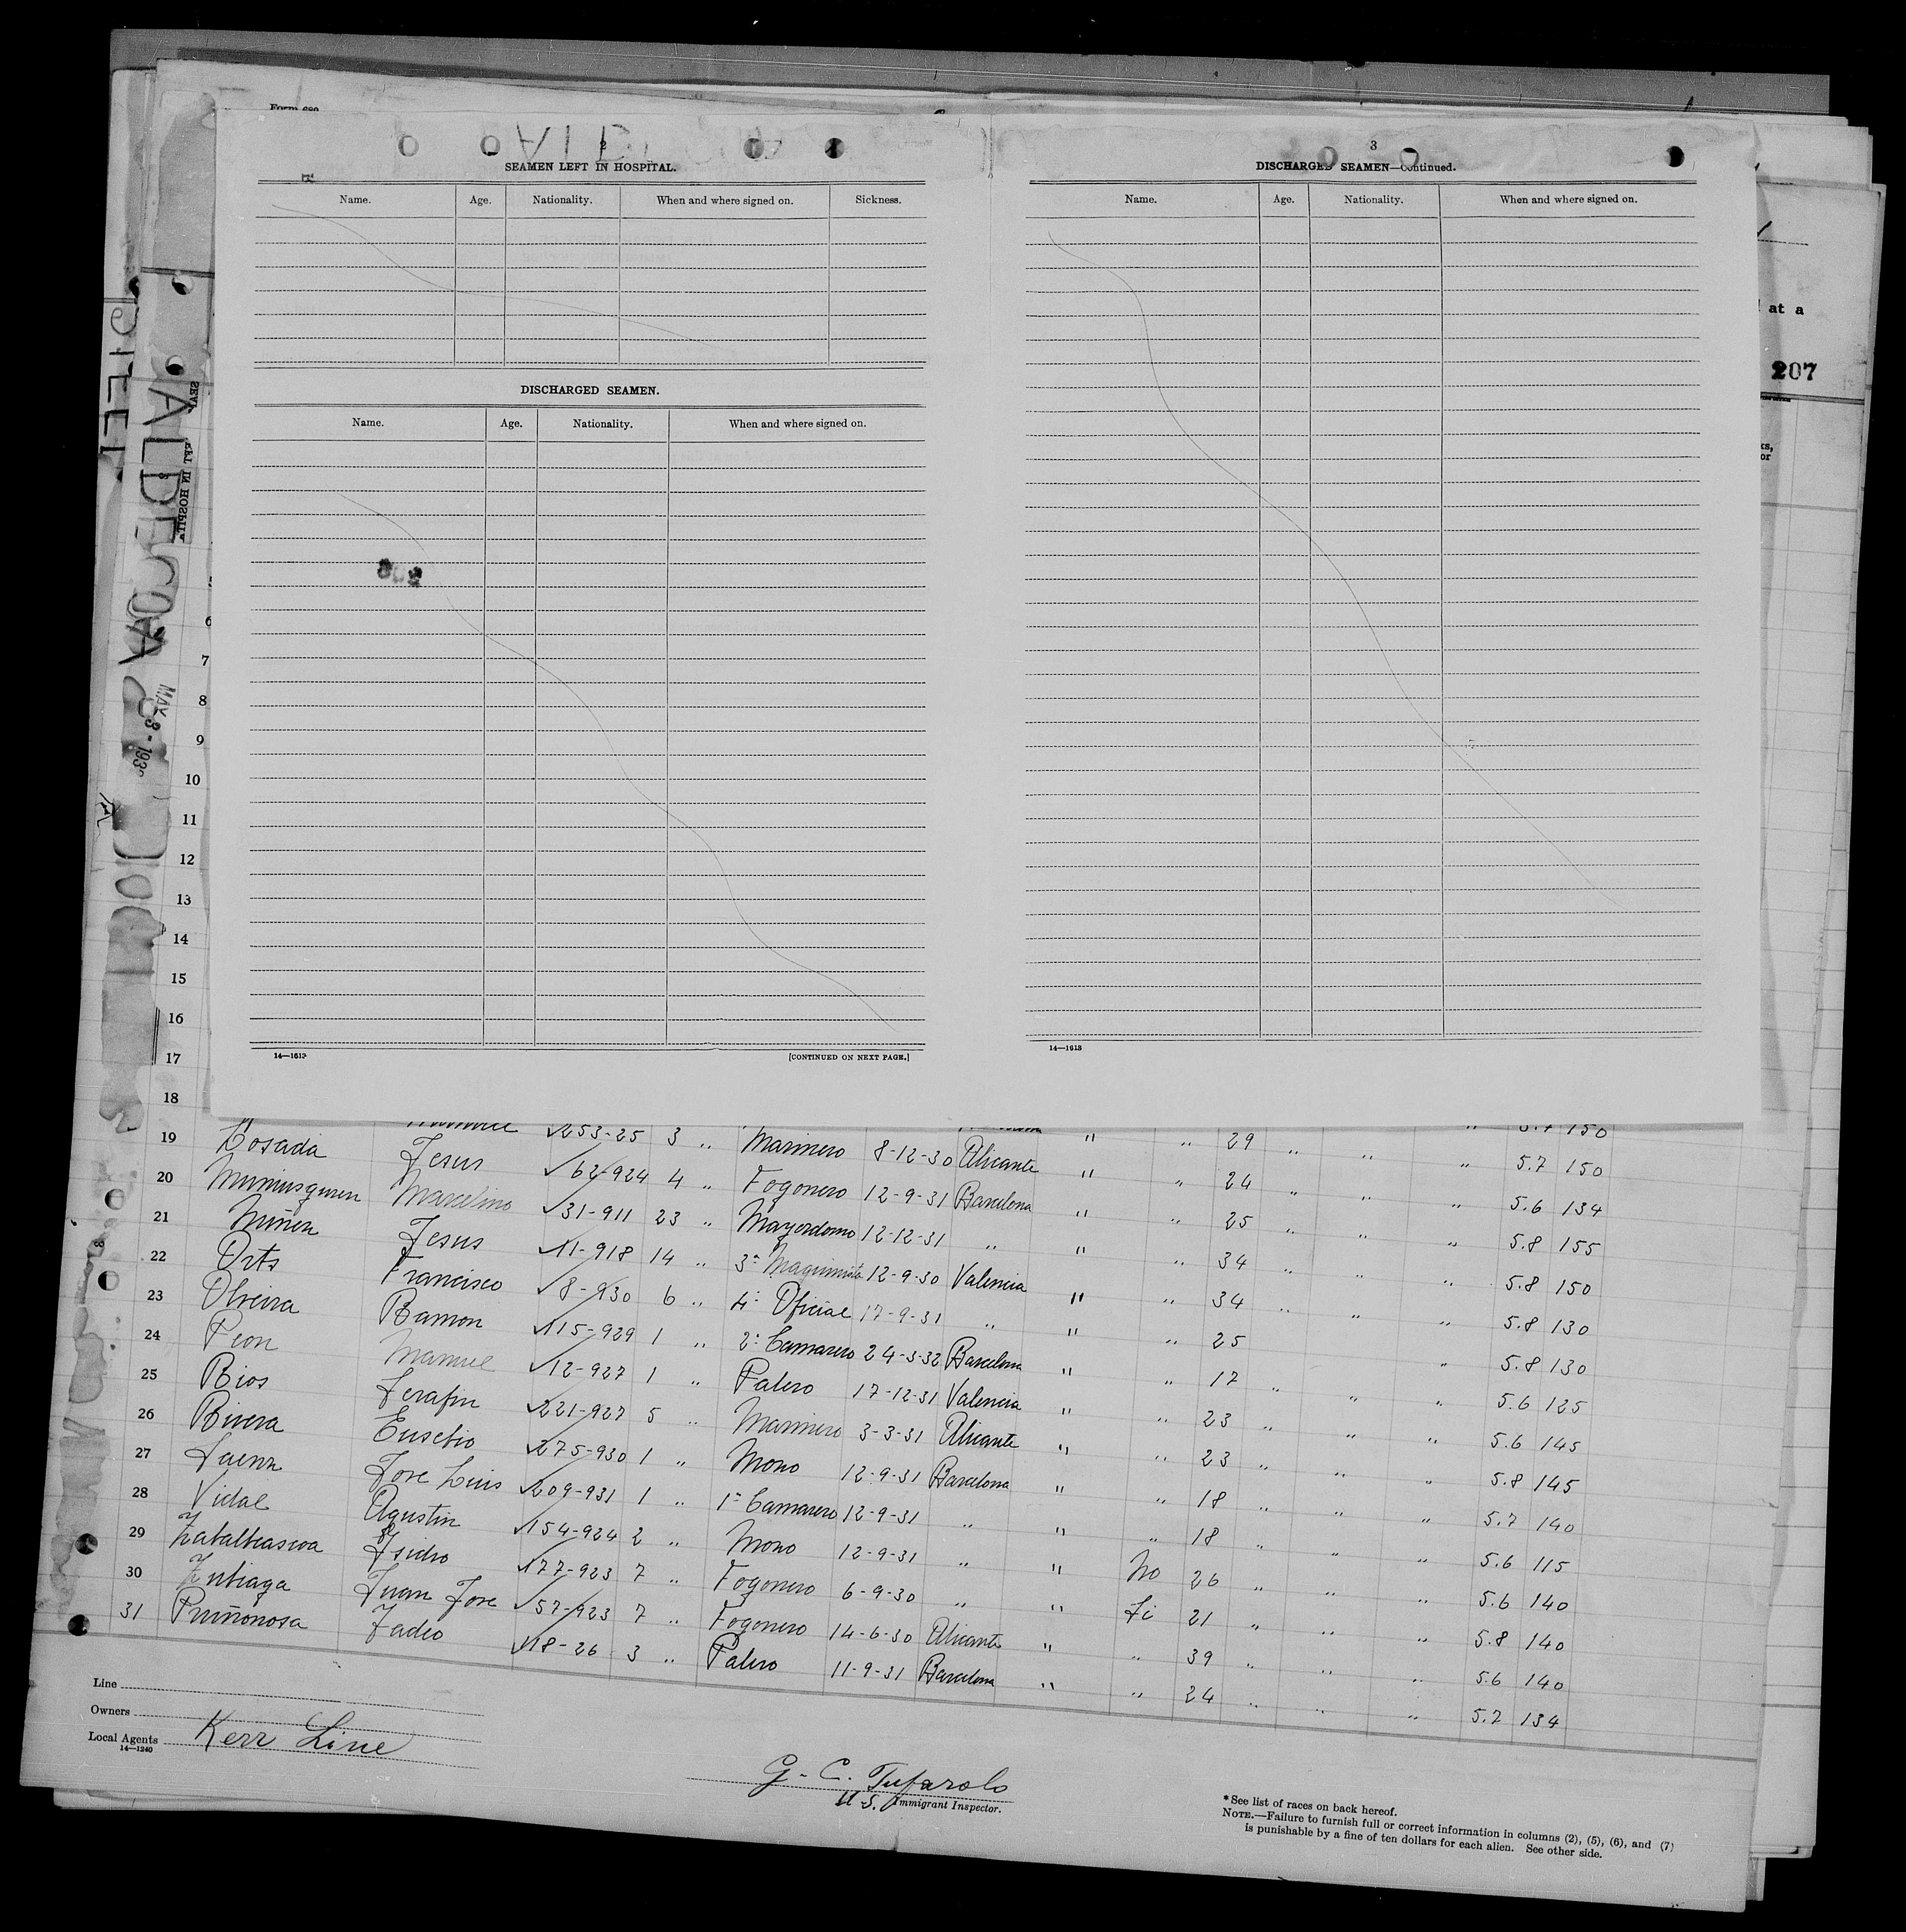 2
SEAMEN LEFT IN HOSPITAL.
Name. Age. Nationality. When and where signed on. Sickness.
DISCHARGED SEAMEN.
Name. Age. Nationality. When and where signed on.
14—1613
[CONTINUED ON NEXT PAGE.]
3
DISCHARGED SEAMEN—Continued.
Name. Age. Nationality. When and where signed on.
14—1613
at a
207
ALDECOA
MAY 3 - 193
6
7
8
9
10
11
12
13
14
15
16
17
18
19 Losada Jesus 62-924 4 " Fogonero 12-9-31 Barcelona " " 24 " " " 5.6 134
20 Marcelino 31-911 23 " Mayordomo 12-12-31 " " " 25 " " " 5.8 155
21 Jesus 11-918 14 " 3º Maquinista 12-9-30 Valencia " " 34 " " " 5.8 150
22 Orts Francisco 8-930 6 " 4º Oficial 17-9-31 " " " 34 " " " 5.8 130
23 Olveira Ramon 115-929 1 " 2º Camarero 24-3-32 Barcelona " " 25 " 5.8 130
24 Peon Manuel 12-927 1 " Palero 17-12-31 Valencia " " 17 " " " 5.6 125
25 Rios Serafin 221-927 5 " Marinero 3-3-31 Alicante " " 23 " " " 5.6 145
26 Rivera Eusebio 275-930 1 " Mozo 12-9-31 Barcelona " " 23 " " " 5.8 145
27 Saenz Jose Luis 209-931 1 " 1º Camarero 12-9-31 " " " 18 " " " 5.7 140
28 Vidal Agustin 154-924 2 " Mozo 12-9-31 " " " 18 " " " 5.6 115
29 Zabalteascoa Isidro 177-923 7 " Fogonero 6-9-30 " " No 26 " " " 5.6 140
30 Zubiaga Juan Jose 57-923 7 " Fogonero 14-6-30 Alicante " Si 21 " " " 5.8 140
31 Puiñonosa Tadeo 18-26 3 " Palero 11-9-31 Barcelona " " 39 " " " 5.6 140
" " 24 " " " 5.7 134
Line
Owners
Local Agents Kerr Line
14—1240
G. C. Tufarolo
U.S. Immigrant Inspector.
*See list of races on back hereof.
NOTE.—Failure to furnish full or correct information in columns (2), (5), (6), and (7)
is punishable by a fine of ten dollars for each alien. See other side.